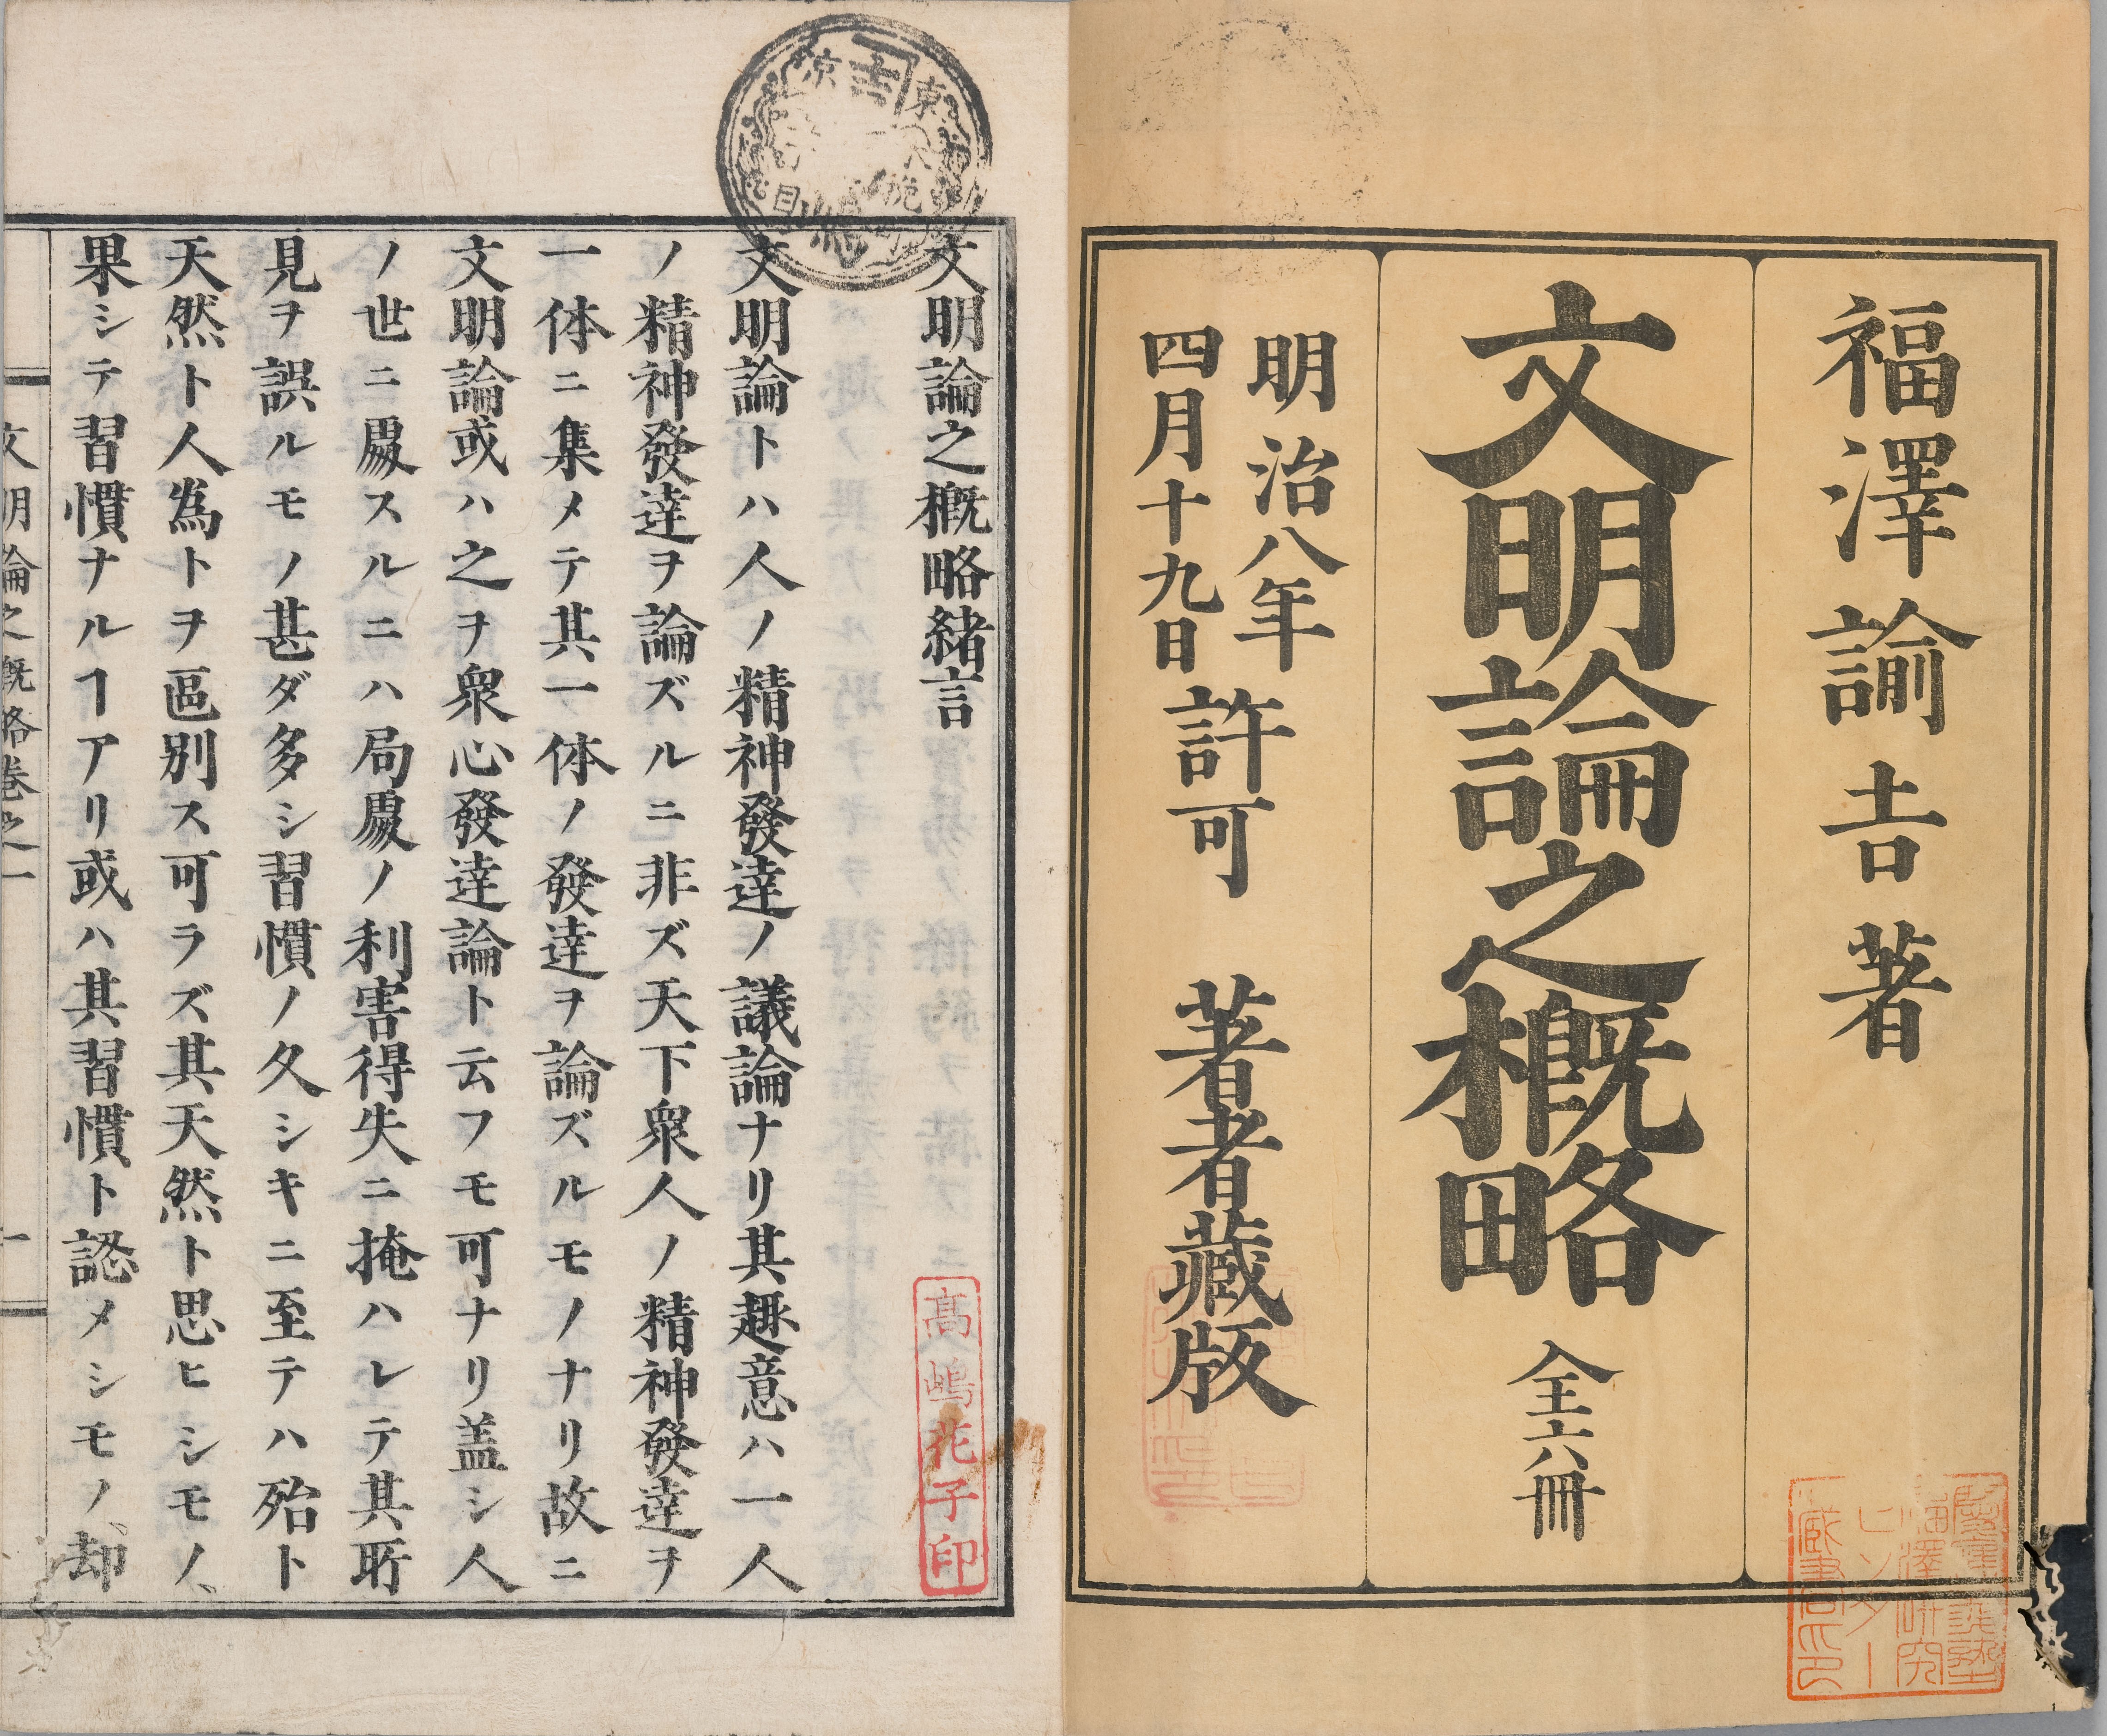 福澤諭吉著
文明論之概略 全六冊
明治八年
四月十九日
許可 著者藏版
文明論之概略緒言
文明論トハ人ノ精神發達ノ議論ナリ其趣意ハ一人
ノ精神發達ヲ論ズルニ非ズ天下衆人ノ精神發達ヲ
一体ニ集メテ其一体ノ發達ヲ論ズルモノナリ故ニ
文明論或ハ之ヲ衆心發達論ト云フモ可ナリ盖シ人
ノ世ニ處スルニハ局處ノ利害得失ニ掩ハレテ其所
見ヲ誤ルモノ甚ダ多シ習慣ノ久シキニ至テハ殆ト
天然ト人為トヲ區別ス可ラズ其天然ト思ヒシモノ、
果シテ習慣ナルヿアリ或ハ其習慣ト認メシモノ、却
文明論之概略巻之一
一
高嶋花子印
慶應義塾
福澤研究
センター
蔵書印